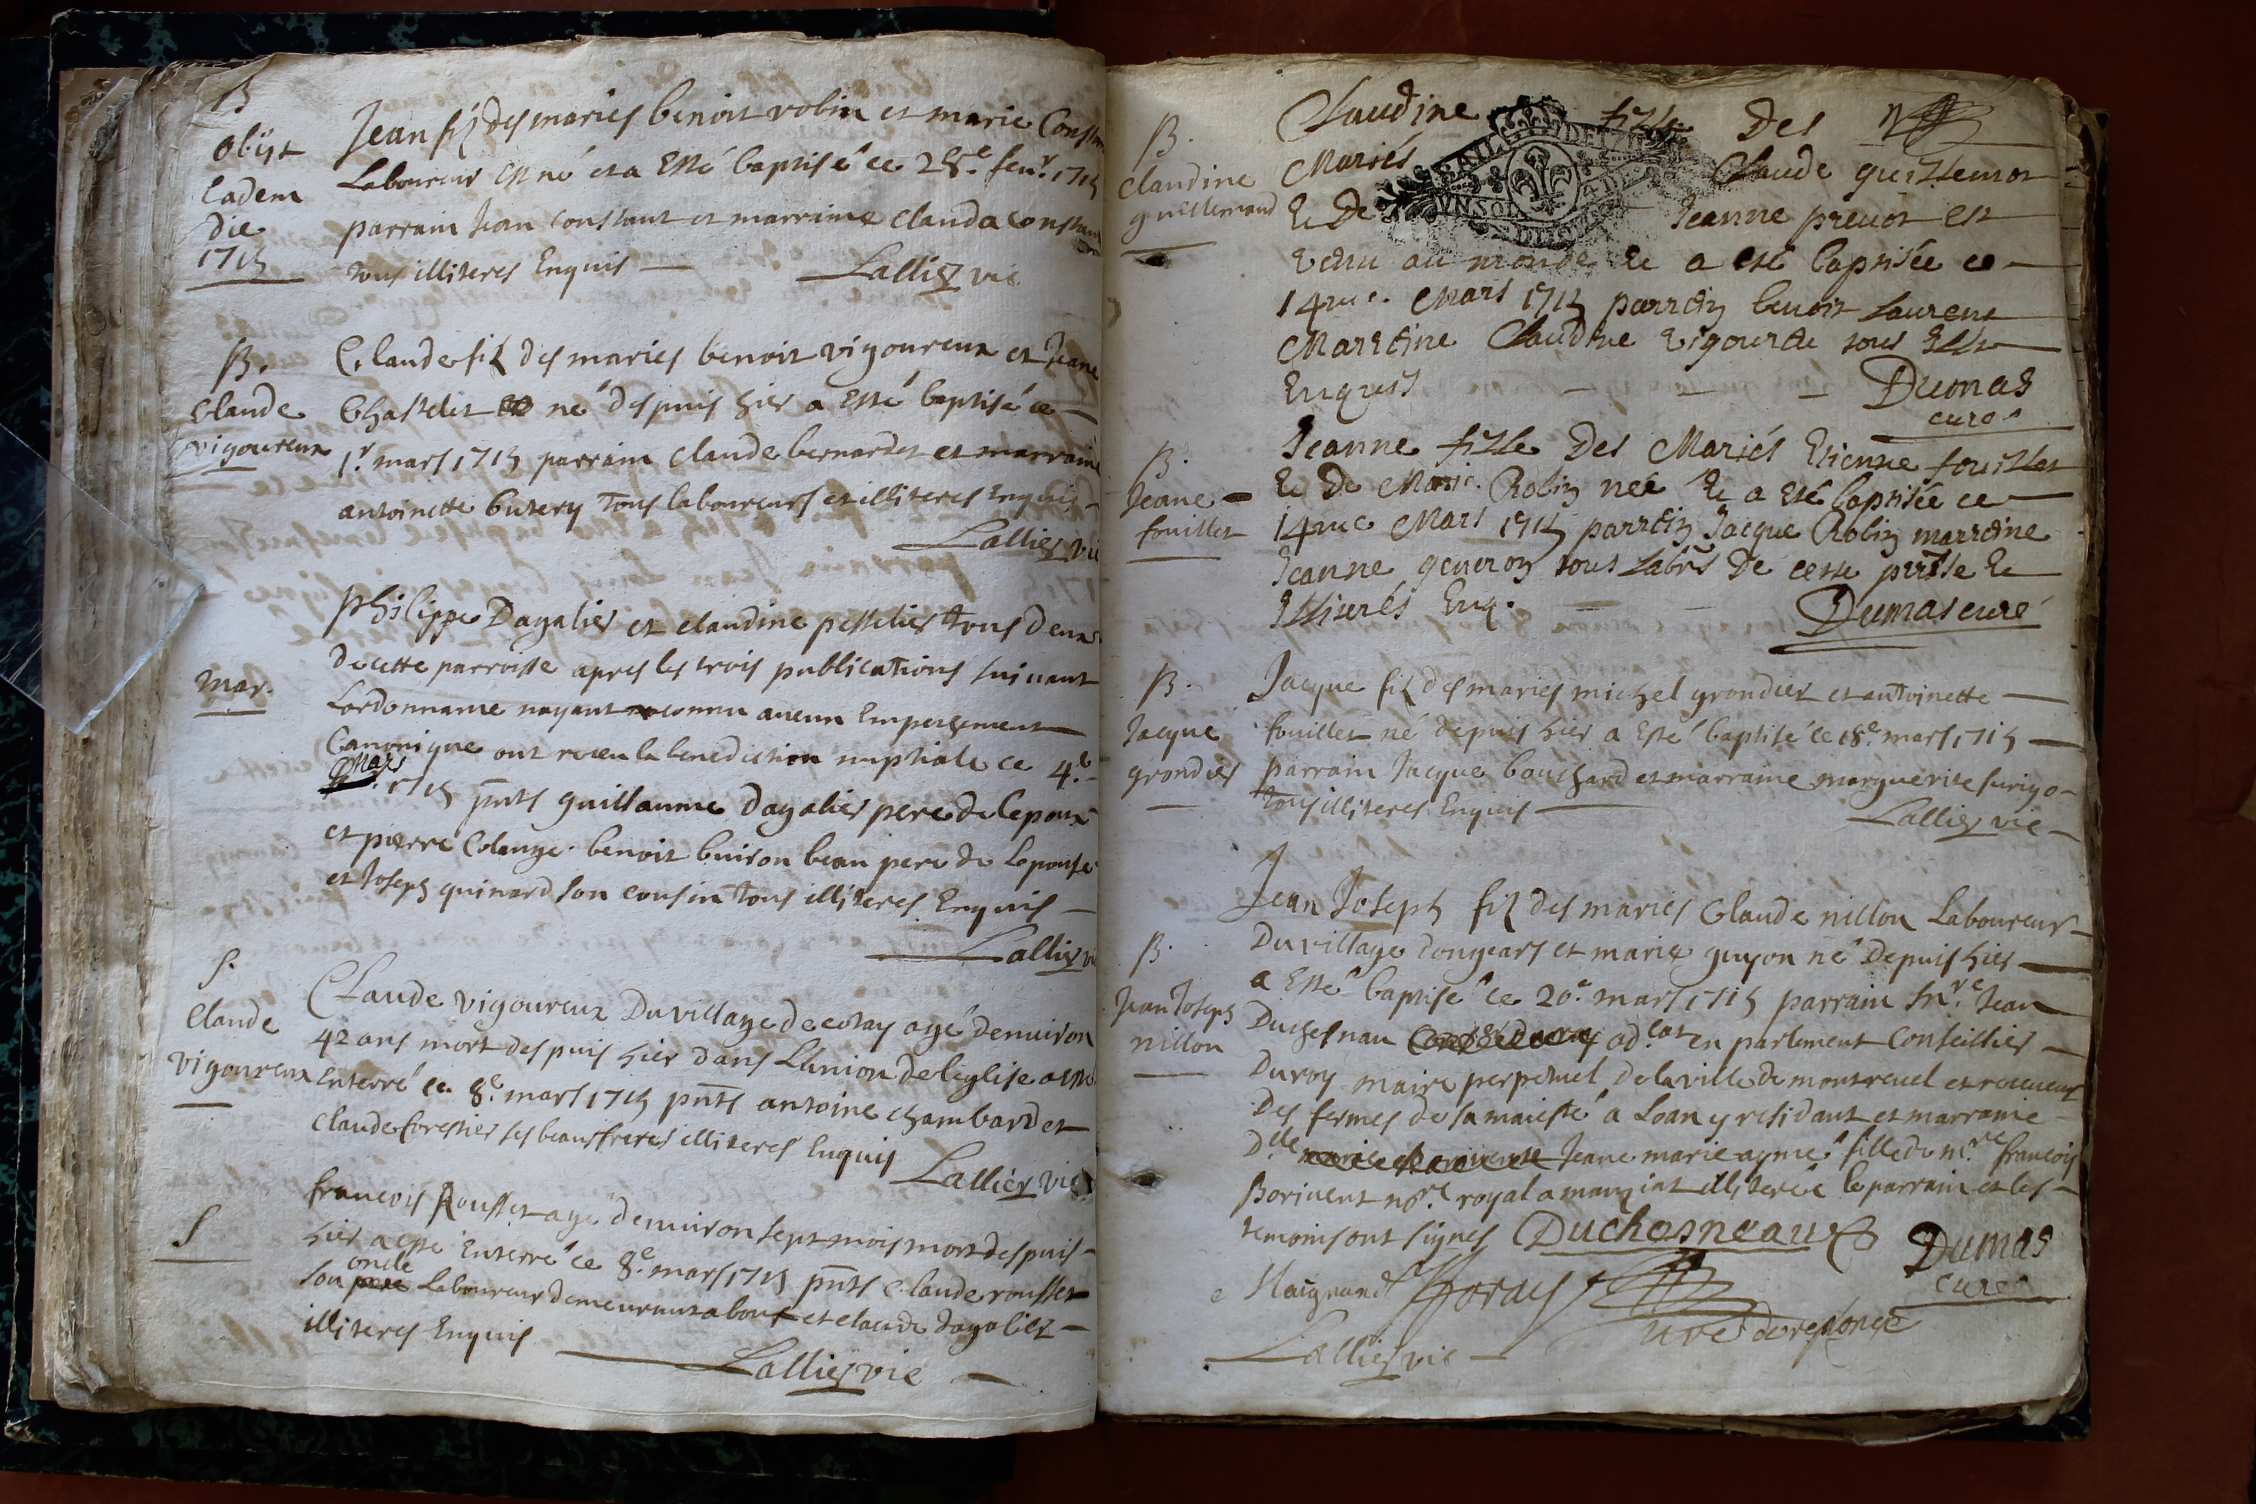 B
obijt
eadem
die
1715
Jean fiz des mariés benoit robin et marie Const
Laboureur est né et a Esté baptisé ce 28e feur. 1715
parrain Jean constant et marraine clauda constant
tous illiteres Enquis
Lallier vic
B.
Claude
vigoureux
Claude fiz des mariés benoit vigoureux et Jeane
Chastelet né despuis hier a Esté baptisé ce
1r. mars 1715 parrain claude bernardet et marraine
antoinette butery tous laboureurs et illiteres Enquis
Lallier vic
mar.
Philippe Dagalier et claudine pesselier tous deux
de cette parroisse apres les trois publications suivant
Lordonnance nayant reconnu aucun Empeschement
Canonique ont receu la benediction nuptiale ce 4e.
Mars
1715 pnts guillaume dagalier pere de lepoux
et pierre Colange benoit buiron beau pere de Lepouse
et Joseph guinard son cousin tous illiteres Enquis
Lallier vi
S.
Claude
vigoureux
Claude vigoureux Du village de cotay agé denuiron
42 ans mort despuis hier dans Lunion de leglise a esté
Enterré ce 8e. mars 1715 pnts antoine chambard et
Claude forestier ses beaux freres illiteres Enquis
Lallier vic
S
francois Rousset agé denuiron sept mois mort despuis
hier a esté Enterré ce 8e. mars 1715 pnts Claude rousset
oncle
son pere Laboureur demeurant a bouf et claude dagalier
illiteres Enquis
Lallier vic
B.
Claudine
guillemaud
Claudine fille Des
Mariés Claude guillemot
& De Jeanne preuot est
venu au monde & a esté baptisée ce
14me. Mars 1715 parrein benoit Laurent
Marreine Claudine vigoureu tous Illit
Enquest
Dumas
curé
B.
Jeane
fouillet
Jeanne fille Des Mariés Etienne fouillet
& De Marie Robin née & a Esté baptisée ce
14me Mars 1715 parrein Jacque Robin marreine
Jeanne generon tous Labrs De cette prsse &
Illiterés Enq.
Dumas curé
B.
Jacque
grondier
Jacque fiz des mariés michel grondier et antoinette
fouillet né depuis hier a Esté baptisé ce 18e. mars 1715
parrain Jacque bouchard et marraine marguerite surigo
tous illiteres Enquis
Lallier vic
B.
Jean Joseph
nillon
Jean Joseph fiz des mariés Claude nillon Laboureur
Du village dongears et marie guyon né Depuis hier
a Esté baptisé ce 20e. mars 1715 parrain Jean
Duchesnau ad.cat en parlement Conseillier
Du roy maire perpetuel de la ville de montreuel et receueur
Des fermes de sa maiesté a Loan y residant et marraine
Dlle Jeane marie aymé fille de mre francois
Boriuent nore royal a manziat illiterée le parrain et les
temoins ont signés Duchesneau
Dumas
curé
Lallier vic